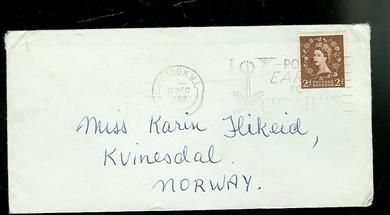 LONDON W.1.
DEC
1962
POST
EARLY
FOR
CHRISTMAS
2½D POSTAGE REVENUE 2½D
Miss Karin Flikeid,
Kvinesdal.
NORWAY.